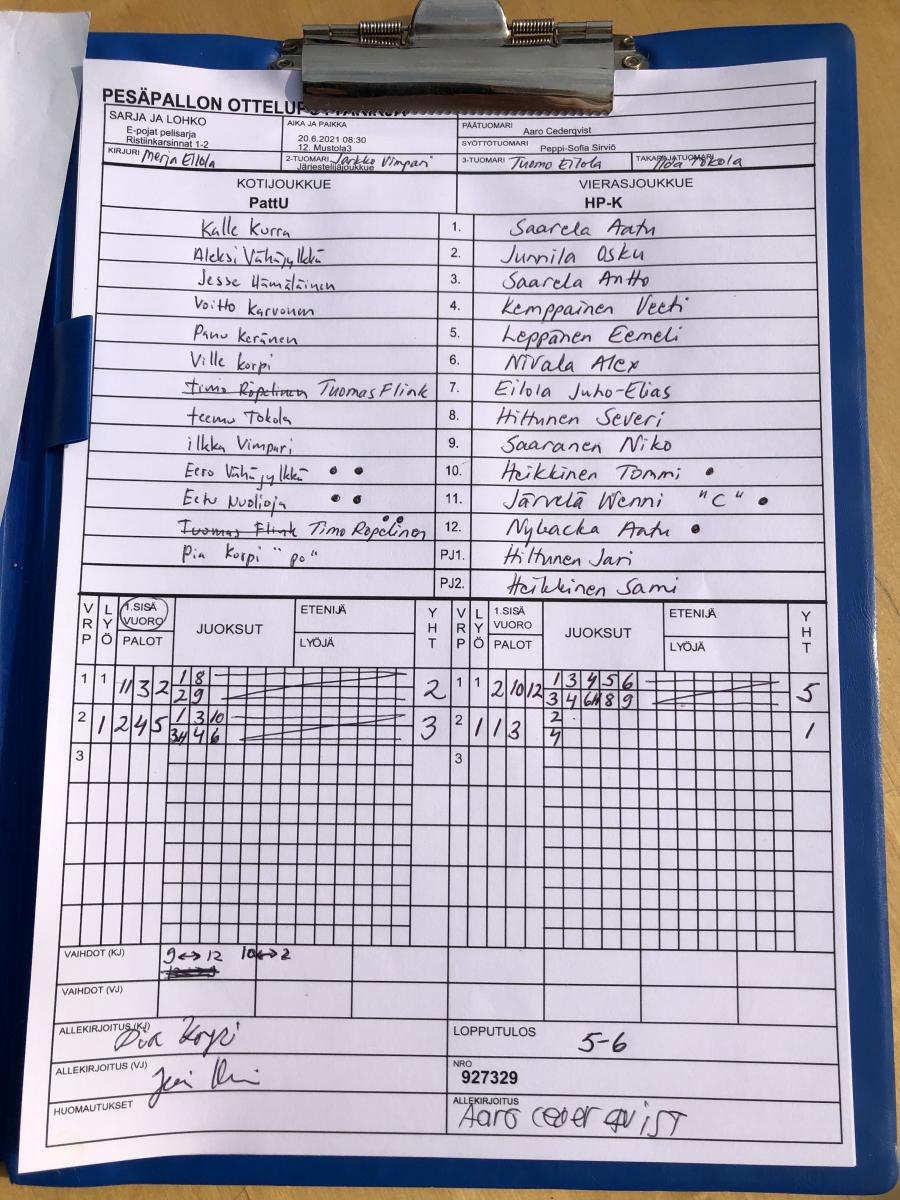 PESÄPALLON OTTELUPÖYTÄKIRJA
SARJA JA LOHKO
E-pojat pelisarja
Ristiinkarsinnat 1-2
AIKA JA PAIKKA
20.6.2021 08:30
12. Mustola3
PÄÄTUOMARI Aaro Cederqvist
SYÖTTÖTUOMARI Peppi-Sofia Sirviö
KIRJURI Merja Eilola
2-TUOMARI Jarkko Vimpari
Järjestelijäjoukkue
3-TUOMARI Tuomo Eilola
TAKARAJATUOMARI Iida Tokola
KOTIJOUKKUE
PattU
VIERASJOUKKUE
HP-K
Kalle Kurra 1. Saarela Aatu
Aleksi Vähäjylkkä 2. Junnila Osku
Jesse Hämäläinen 3. Saarela Antto
Voitto Karvonen 4. Kemppainen Veeti
Panu Keränen 5. Leppänen Eemeli
Ville Korpi 6. Nivala Alex
Timo Röpelinen Tuomas Flink 7. Eilola Juho-Elias
teemu Tokola 8. Hiltunen Severi
ilkka Vimpari 9. Saaranen Niko
Eero Vähäjylkkä • • 10. Heikkinen Tommi •
Eetu Nuolioja • • 11. Järvelä Wenni "C" •
Tuomas Flink Timo Röpelinen 12. Nybacka Aatu •
Pia Korpi "po" PJ1. Hiltunen Jari
PJ2. Heikkinen Sami
VRP LYÖ 1.SISÄ VUORO PALOT JUOKSUT ETENIJÄ LYÖJÄ YHT VRP LYÖ 1.SISÄ VUORO PALOT JUOKSUT ETENIJÄ LYÖJÄ YHT
1 1 11 3 2 1 8 2 1 1 2 10 12 1 3 4 5 6 5
2 9 3 4 6H 8 9
2 1 2 4 5 1 3 10 3 2 1 1 3 2 1
3H 4 6 4
3 3
VAIHDOT (KJ) 9↔12 10↔2
VAIHDOT (VJ)
ALLEKIRJOITUS (KJ) Pia Korpi
LOPPUTULOS 5-6
ALLEKIRJOITUS (VJ)
NRO
927329
HUOMAUTUKSET
ALLEKIRJOITUS
Aaro cederqvist